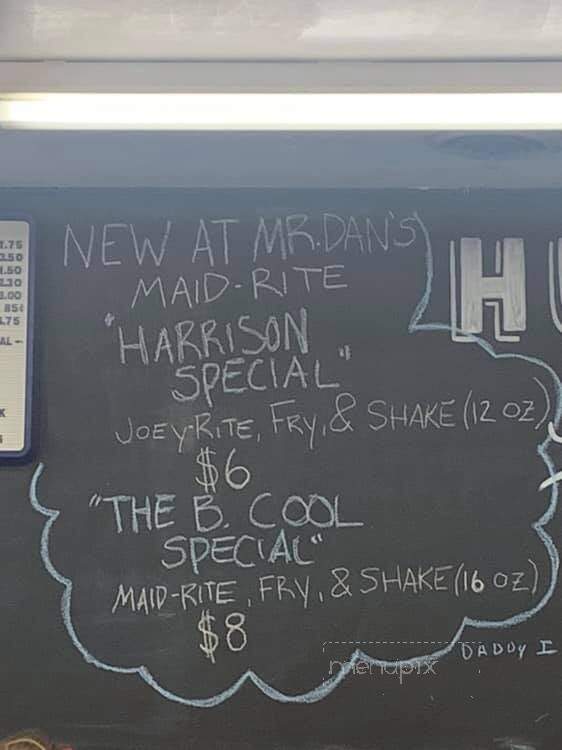 NEW AT MR. DAN'S
MAID-RITE
"HARRISON
SPECIAL"
JOEY-RITE, FRY, & SHAKE (12 OZ)
$6
"THE B. COOL
SPECIAL"
MAID-RITE, FRY, & SHAKE (16 OZ)
$8
DADDY I
menupix
H
.75
.50
.50
.30
.00
85¢
.75
AL
K